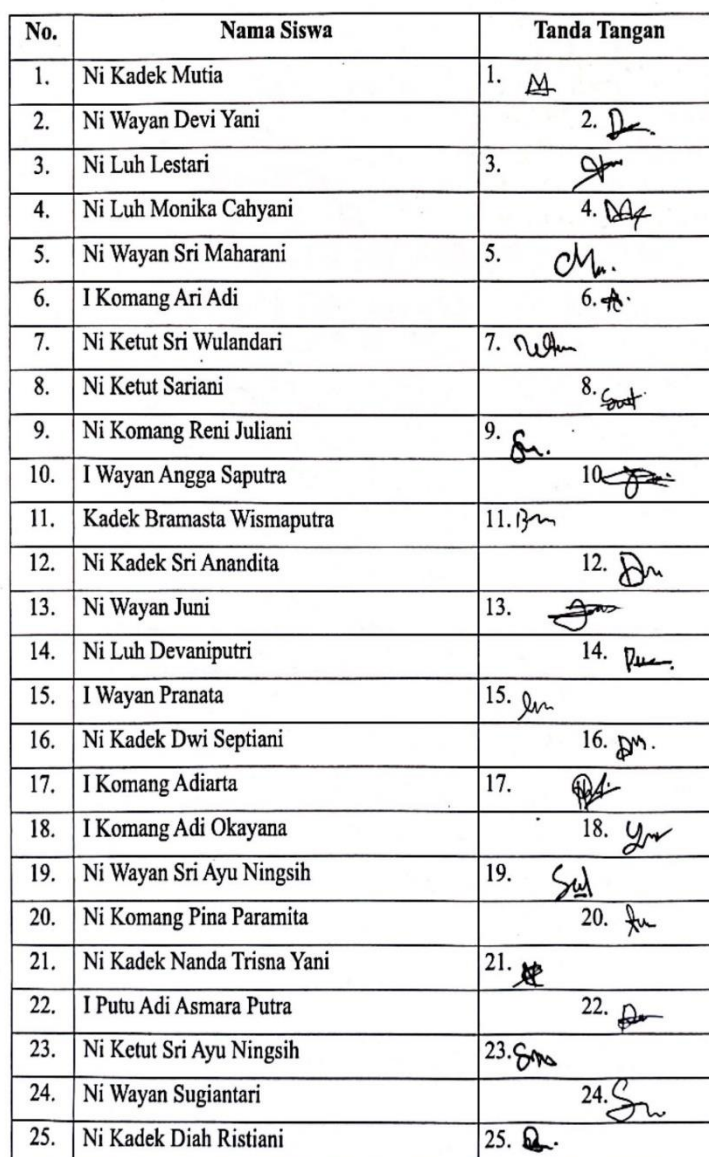 No. Nama Siswa Tanda Tangan
1. Ni Kadek Mutia 1.
2. Ni Wayan Devi Yani 2.
3. Ni Luh Lestari 3.
4. Ni Luh Monika Cahyani 4.
5. Ni Wayan Sri Maharani 5.
6. I Komang Ari Adi 6.
7. Ni Ketut Sri Wulandari 7.
8. Ni Ketut Sariani 8.
9. Ni Komang Reni Juliani 9.
10. I Wayan Angga Saputra 10
11. Kadek Bramasta Wismaputra 11.
12. Ni Kadek Sri Anandita 12.
13. Ni Wayan Juni 13.
14. Ni Luh Devaniputri 14.
15. I Wayan Pranata 15.
16. Ni Kadek Dwi Septiani 16.
17. I Komang Adiarta 17.
18. I Komang Adi Okayana 18.
19. Ni Wayan Sri Ayu Ningsih 19.
20. Ni Komang Pina Paramita 20.
21. Ni Kadek Nanda Trisna Yani 21.
22. I Putu Adi Asmara Putra 22.
23. Ni Ketut Sri Ayu Ningsih 23.
24. Ni Wayan Sugiantari 24.
25. Ni Kadek Diah Ristiani 25.